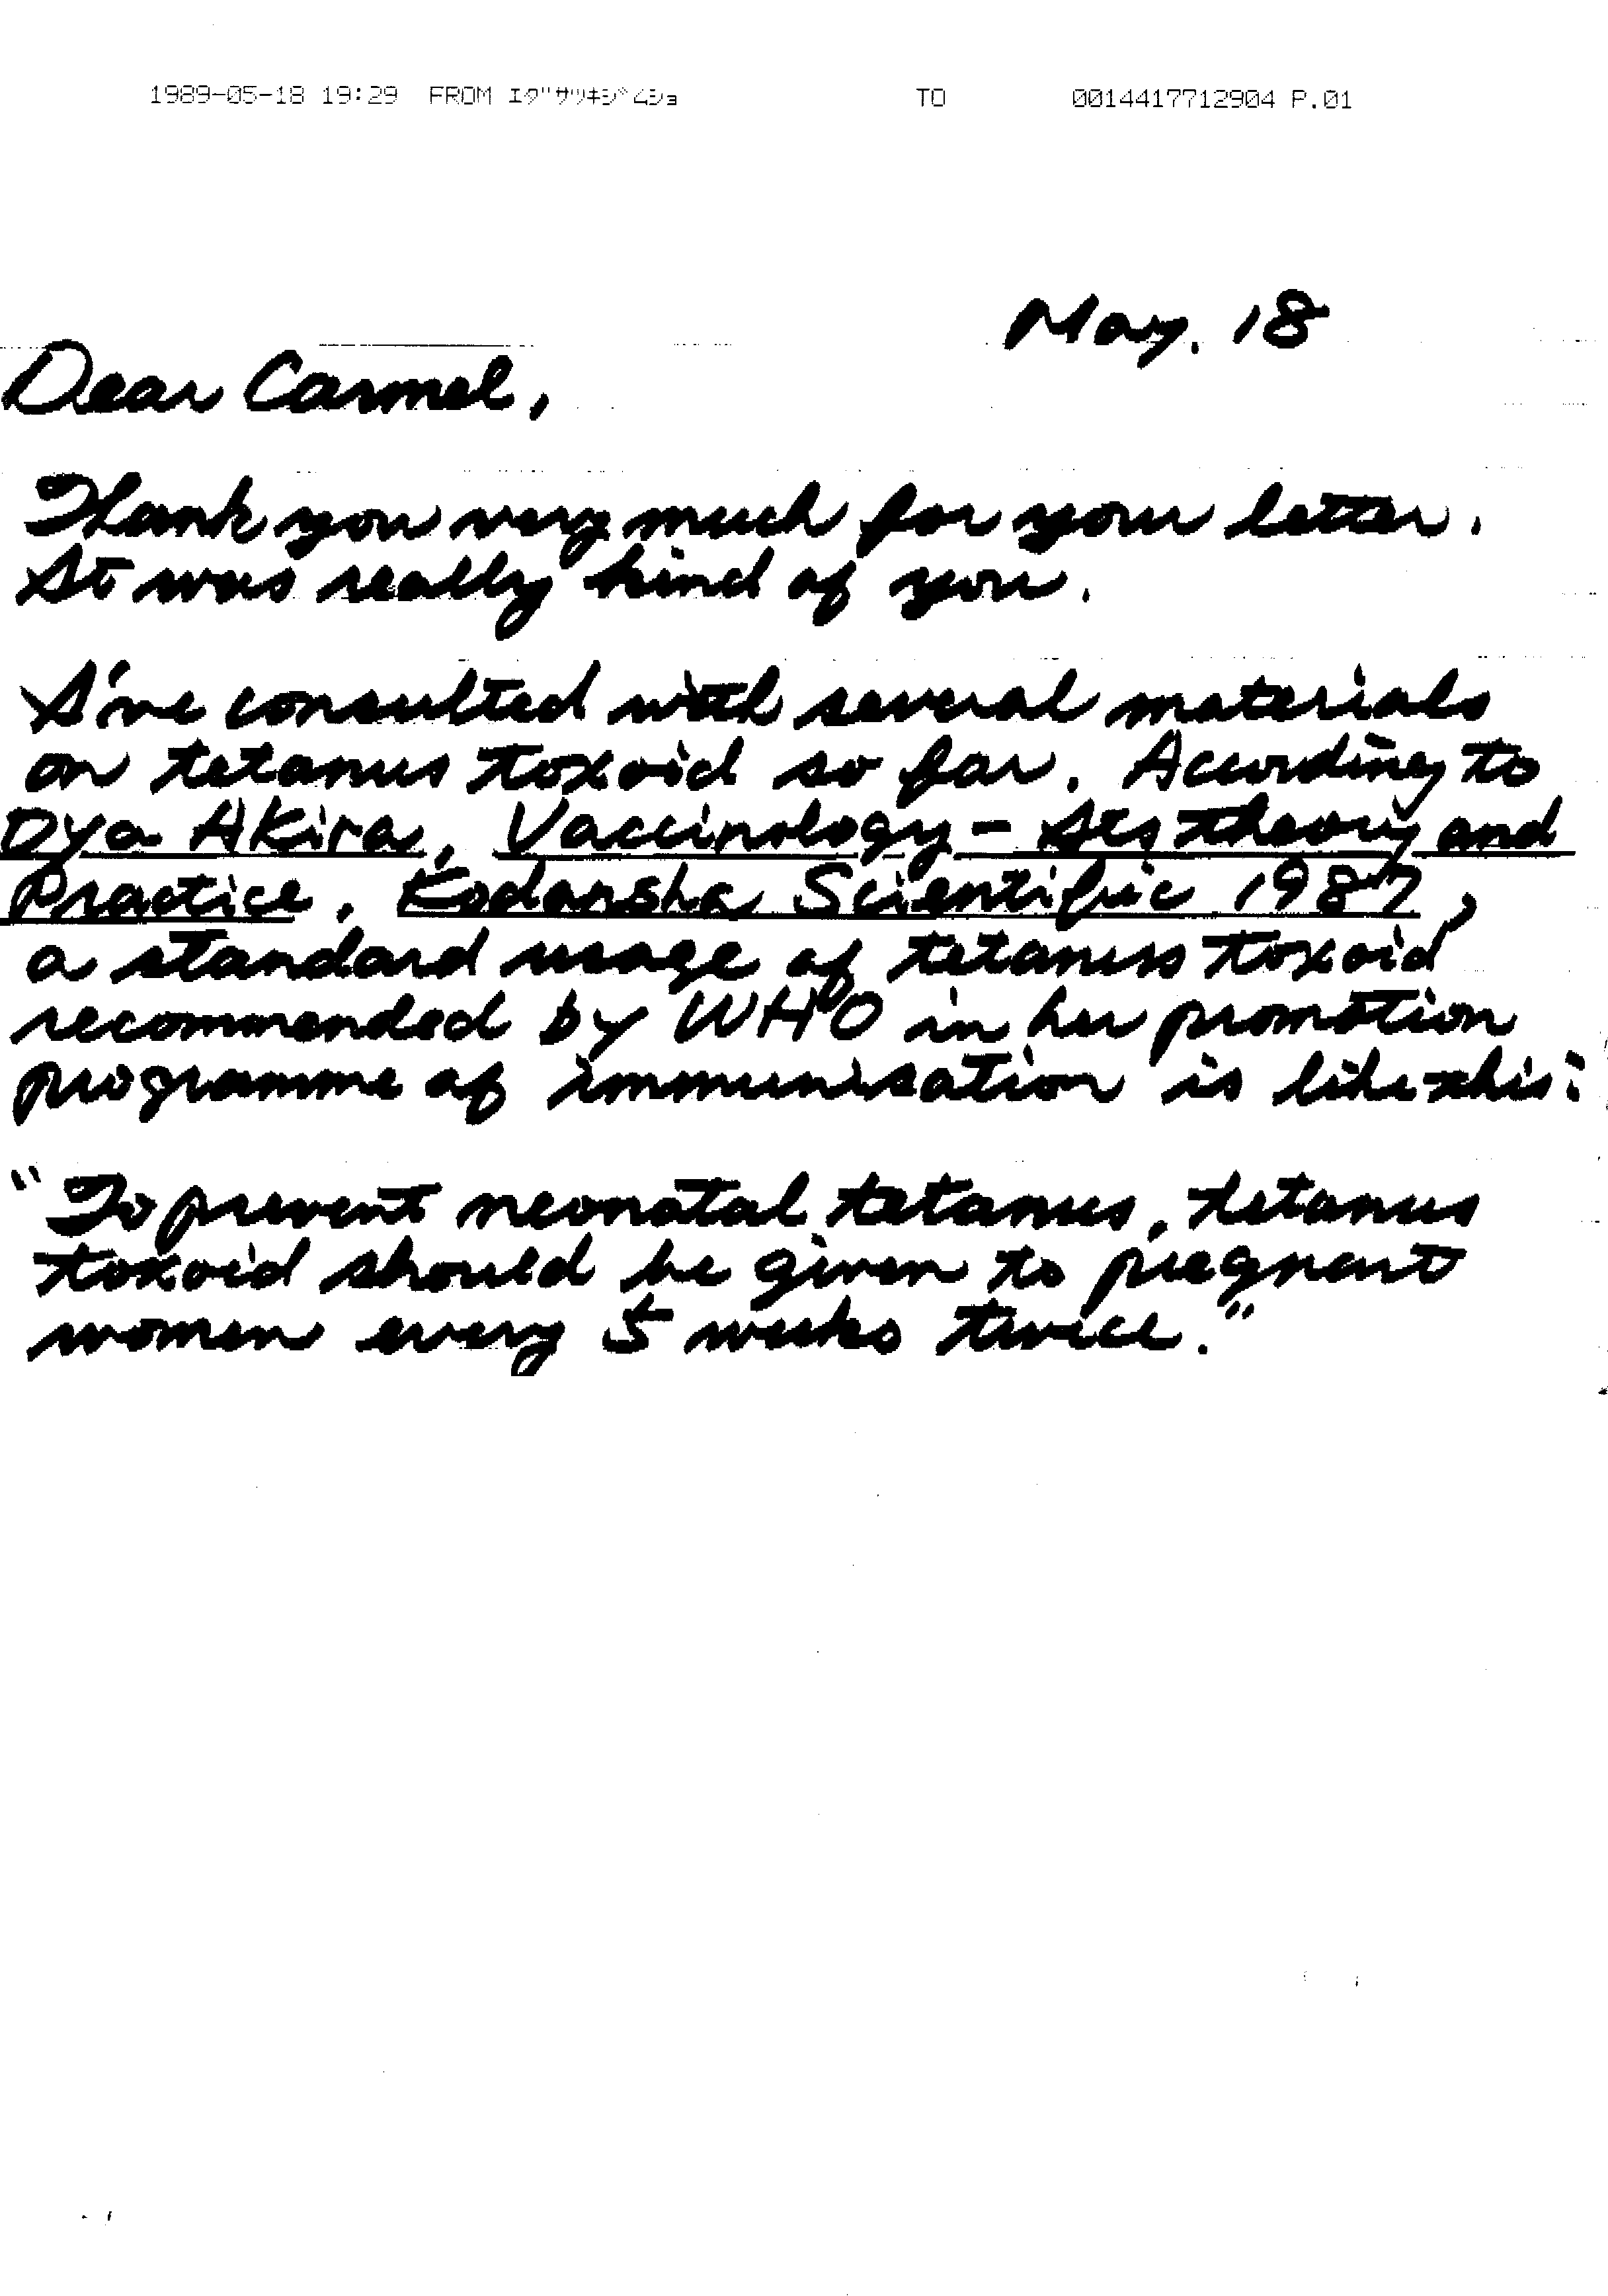 1989-05-18 19:29 FROM エグサツキジムショ TO 0014417712904 P.01
May. 18
Dear Carmel,
Thank you very much for your letter.
It was really kind of you.
I've consulted with several materials
on tetanus toxoid so far. Acurding to
Oya Akira, Vaccinology - Its theory and
Practice, Kodansha Scientific 1987,
a standard usage of tetanus toxoid
recommended by WHO in her promotion
programme of immunisation is like this:
"To prevent neonatal tetanus, tetanus
toxoid should be given to pregnant
women every 5 weeks twice."